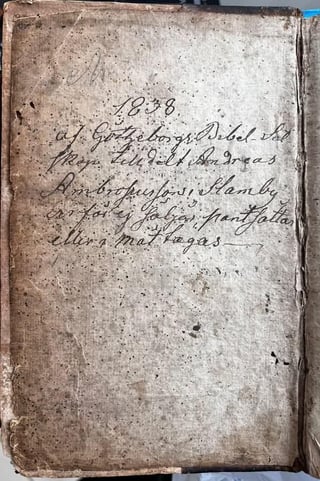 M
1838
af Götheborgs Bibel Säl
skap tilldelt Andreas
Ambrosiusson i Hamby
får ej säljas, pantsättas
eller mottagas